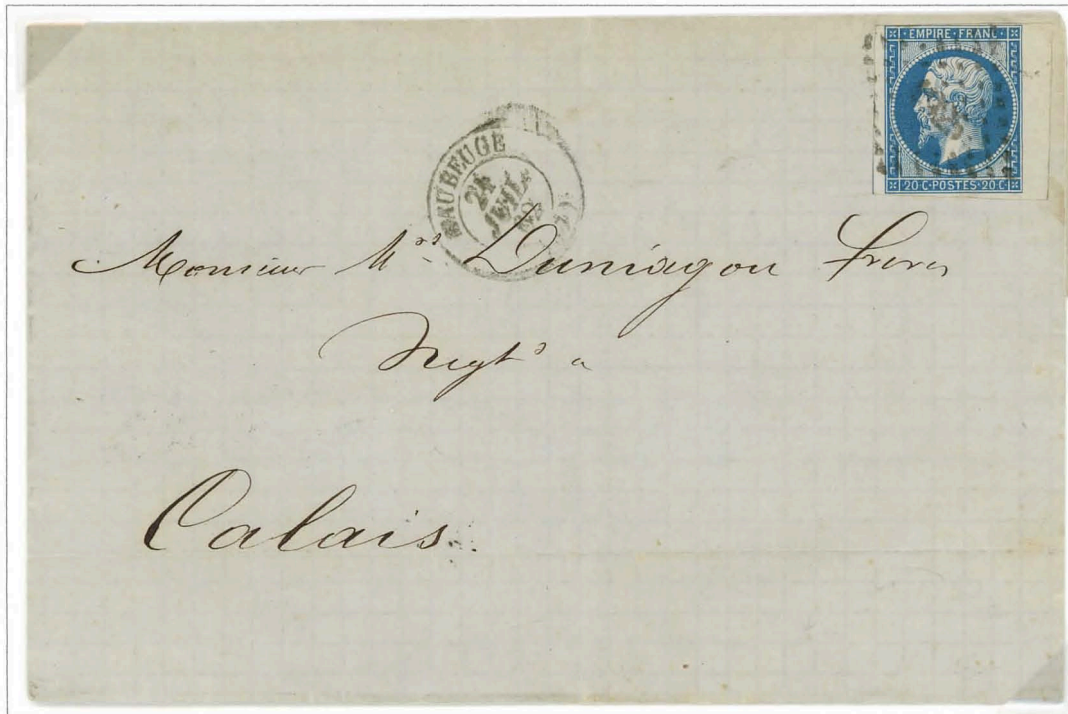 EMPIRE FRANC
20 C POSTES 20 C
MAUBEUGE
JUIL
Monsieur M.rs Dumagou frères
Negt.s a
Calais.